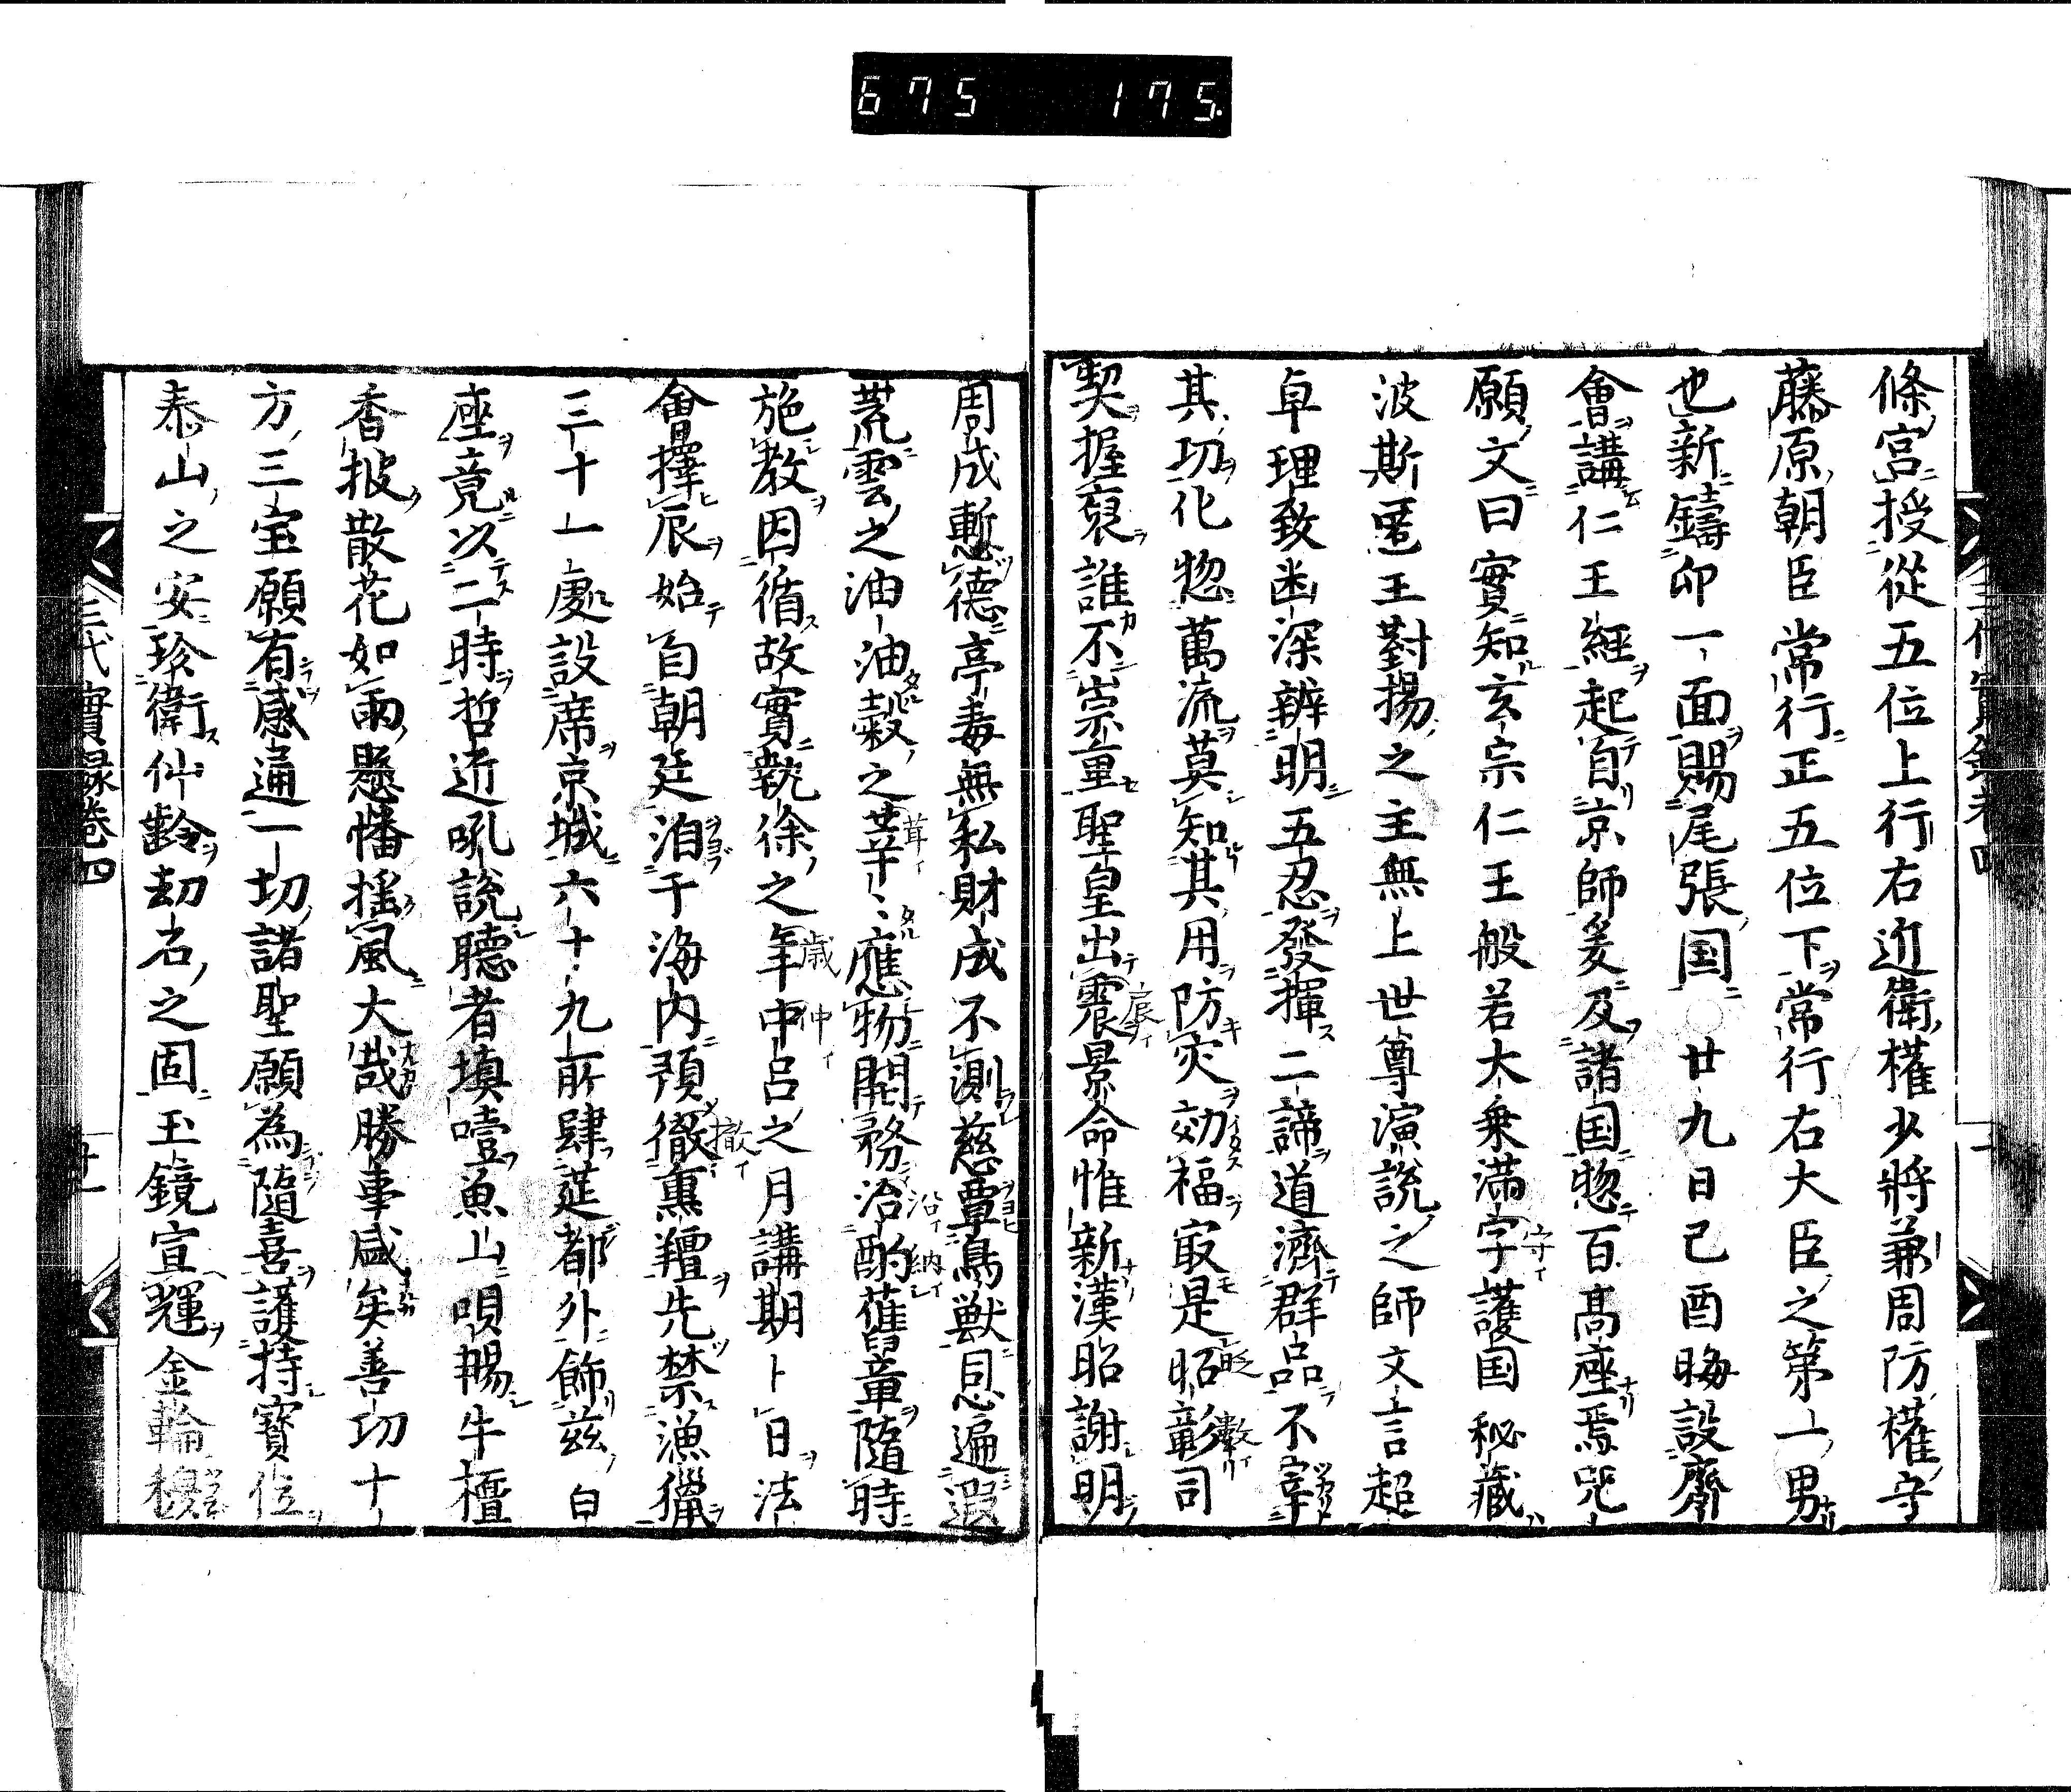 675 175.
條宮授從五位上行右近衛權少將兼周防權守
藤原朝臣常行正五位下常行右大臣之第一男
也新鑄印一面賜尾張国○廿九日己酉晦設齋
會講仁王經起自京師爰及諸国惣百髙座焉咒
願文曰實知玄宗仁王般若大乗滿字護国秘藏
波斯匿王對揚之主無上世尊演説之師文言超
卓理致幽深辨明五忍發揮二諦道濟群品不宰
其功化惣萬流莫知其用防灾効福冣是昭彰司
契握裒誰不崇重聖皇出震景命惟新漢昭謝明
周成慙德亭毒無私財成不測慈覃鳥獸恩遍遐
荒雲之油油穀之莘〻應物開務治酌舊章隨時
施教因循故實執徐之年中呂之月講期卜日法
會擇辰始自朝廷洎于海内預徹薫羶先禁漁獵
三十一處設席京城六十九所肆莚都外飾玆白
座竟以二時哲近吼説聽者塡噎魚山唄暢牛檀
香披散花如雨懸幡揺風大哉勝事盛矣善切十
方三宝願有感通一切諸聖願為隨喜護持寶位
泰山之安珍衛仲齡劫石之固玉鏡宣輝金輪穆
三代實録卷四 十一